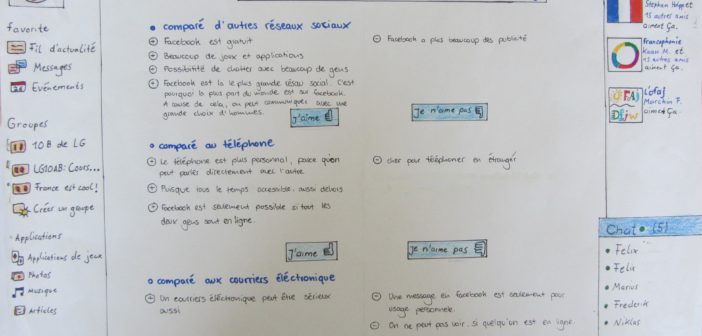 favorite
Fil d'actualité
Messages
Événements
Groupes
10 B de LG
LG10AB: Cours...
France est cool!
Créer un groupe
Applications
Applications de jeux
Photos
Musique
Articles
comparé d'autres réseaux sociaux
+ Facebook est gratuit
+ Beaucoup de jeux et applications
+ Possibilité de chatter avec beaucoup de gens
+ Facebook est la le plus grande résau social. C'est
pourquoi la plus part du monde est sur facebook.
A cause de cela, on peut communiquer avec une
grande choix d'hommes.
- Facebook a plus beaucoup des publicité
J'aime
Je n'aime pas
comparé au téléphone
+ Le téléphone est plus personnal, parce qu'on
peut parler directement avec l'autre.
+ Puisque tous le temps accesible, aussi dehors
+ Facebook est seulement possible si tout les
deux gens sont en ligne.
- cher pour téléphoner en étranger
J'aime
je n'aime pas
comparé aux courriers éléctronique
+ Un courriers éléctronique peut être sérieux
aussi
- Une message en Facebook est seulement pour
usage personnele.
- On ne peut pas voir, si quelqu'un est en ligne.
15 autres amis
aiment ça.
Francophonie
et
autres amis
aiment ça.
Marchin F.
aiment ça.
Chat (5)
Felix
Felix
Marius
Frederik
Niklas